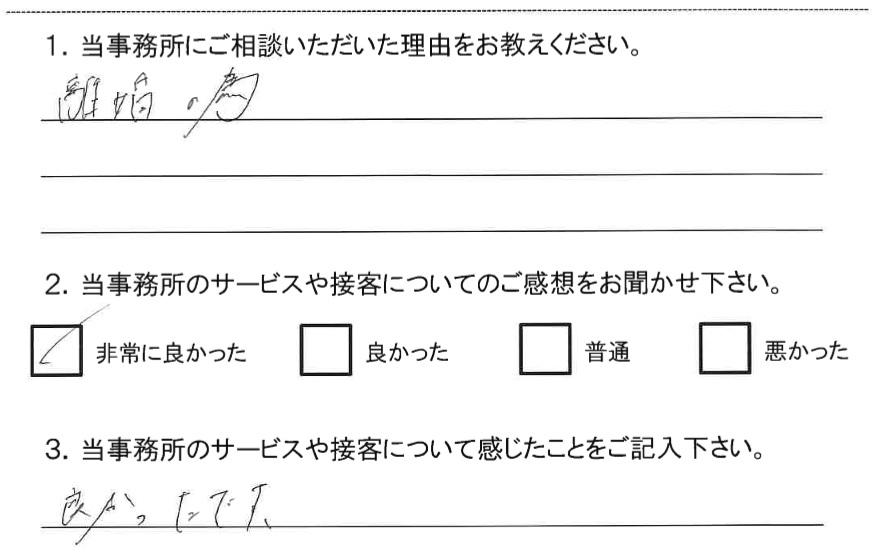 1. 当事務所にご相談いただいた理由をお教えください。
離婚の為
2. 当事務所のサービスや接客についてのご感想をお聞かせ下さい。
非常に良かった 良かった 普通 悪かった
3. 当事務所のサービスや接客について感じたことをご記入下さい。
良かったです、